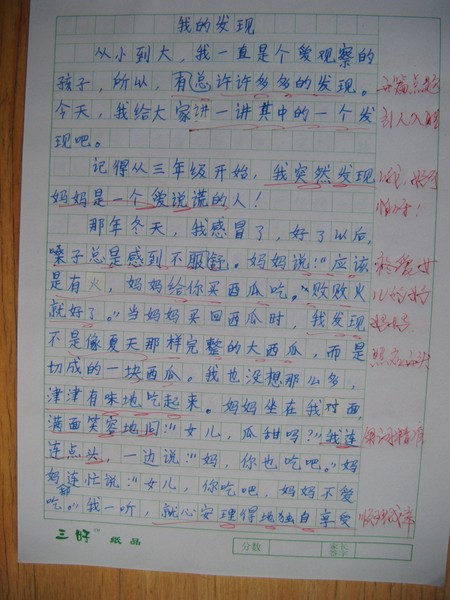 我的发现
从小到大，我一直是个爱观察的
孩子，所以，有总许许多多的发现。
今天，我给大家讲一讲其中的一个发
现吧。
记得从三年级开始，我突然发现
妈妈是一个爱说谎的人！
那年冬天，我感冒了，好了以后，
嗓子总是感到不服舒。妈妈说：“应该
是有火，妈妈给你买西瓜吃。”败败火
就好了。”当妈妈买回西瓜时，我发现
不是像夏天那样完整的大西瓜，而是
切成的一块西瓜。我也没想那么多，
津津有味地吃起来。妈妈坐在我对面，
满面笑容地问：“女儿，瓜甜吗？”我连
连点头，一边说：“妈，你也吃吧。”妈
妈连忙说：“女儿，你吃吧，妈妈不爱
吃。”我一听，就心安理得地独自享受
开篇点题
引人入胜
三好 纸品
分数
家长
签字